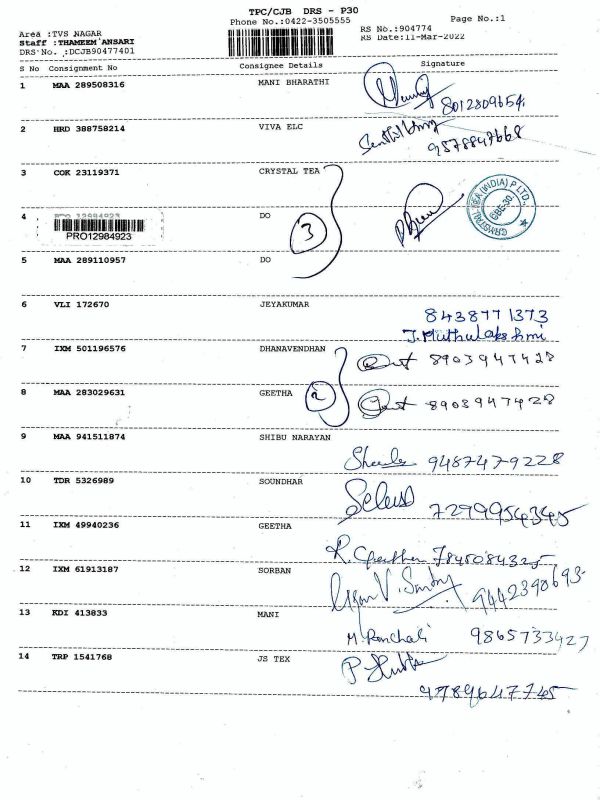 TPC/CJB DRS - P30
Phone No.:0422-3505555 Page No.:1
Area :TVS NAGAR RS No.:904774
Staff :THAMEEM ANSARI RS Date:11-Mar-2022
DRS No.:DCJB90477401
S No Consignment No Consignee Details Signature
1 MAA 289508316 MANI BHARATHI
8012809654
2 HRD 388758214 VIVA ELC
9578847668
3 COK 23119371 CRYSTAL TEA
CRYSTAL TEA (INDIA) P LTD.,
4 PRO 12984923 DO 3
PRO12984923
5 MAA 289110957 DO
6 VLI 172670 JEYAKUMAR 8438771373
J.Muthulakshmi
7 IXM 501196576 DHANAVENDHAN 8903947428
8 MAA 283029631 GEETHA 2 8903947428
9 MAA 941511874 SHIBU NARAYAN
9487479228
10 TDR 5326989 SOUNDHAR
7299954345
11 IXM 49940236 GEETHA
R. Geetha 7845084325
12 IXM 61913187 SORBAN
9442398693
13 KDI 413833 MANI
M. Panchali 9865733427
14 TRP 1541768 JS TEX